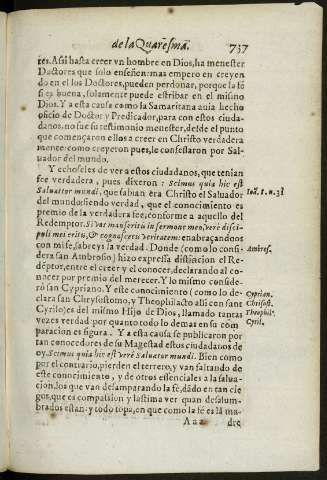 de la Quaresma. 737
res. Assi hasta creer vn hombre en Dios, ha menester
Doctores que solo enseñen: mas empero en creyen
do en el los Doctores, pueden perdonar, porque la fè
si es buena, solamente puede estribar en el mismo
Dios. Y a esta causa como la Samaritana auia hecho
oficio de Doctor y Predicador, para con estos ciuda-
danos, no fue su testimonio menester, desde el punto
que començaron ellos a creer en Christo verdadera
mente: como creyeron pues, le confessaron por Sal-
uador del mundo.
Y echoseles de ver a estos ciudadanos, que tenian
fee verdadera, pues dixeron: Scimus quia hic est
Saluator mundi, que sabian era Christo el Saluador
del mundo: siendo verdad, que el conocimiento es
premio de la verdadera fee, conforme a aquello del
Redemptor. Si vos manseritis in sermone meo, verè disci-
puli mei eritis, & cognoscetis veritatem: enabraçandoos
con mi fe, sabreys la verdad. Donde (como lo consi-
dera san Ambrosio) hizo expressa distincion el Re-
dẽptor, entre el creer y el conocer, declarando al co-
nocer por premio del merecer. Y lo mismo conside-
rò san Cypriano. Y este conocimiento (como lo de-
clara san Chrysostomo, y Theophilacto assi con sant
Cyrilo) es del mismo Hijo de Dios, llamado tantas
vezes verdad: por quanto todo lo demas en su com
paracion es figura. Y a esta causa se publicaron por
tan conocedores de su Magestad estos ciudadanos de
oy. Scimus quia hic est verè Saluator mundi. Bien como
por el contrario, pierden el terreno, y van faltando de
este conocimiento, y de otros essenciales a la salua-
cion, los que van desamparando la fè, dãdo en tan cie
gos, que es compassion y lastima ver quan deslum-
brados estan: y todo topa, en que como la fè es la ma-
Ioã. 1. n. 31
Ambros.
Cyprian.
Chrisost.
Theophil.
Cyril.
Aaa dre